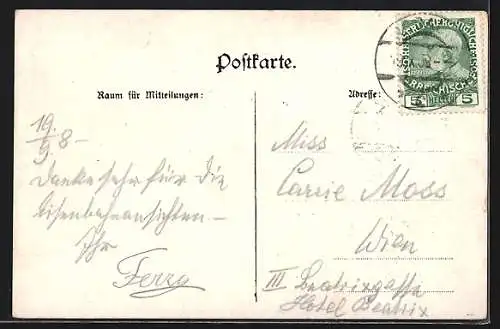 Postkarte.
Raum für Mitteilungen:
Adresse:
5 HELLER 5
19/9 8 –
Danke sehr für die
Eisenbahnansichten –
Ihr
Miss
Carrie Moss
Wien
III Beatrixgasse
Hotel Beatrix